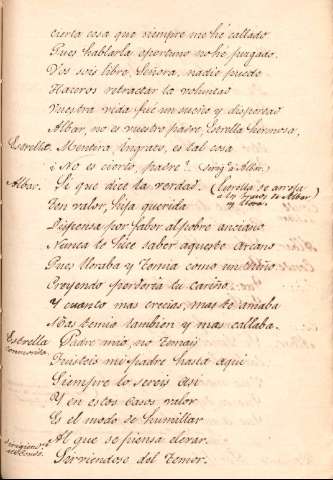 cierta cosa que siempre me hé callado
Pues hablarla oportuno no hé juzgado.
Vos sois libre, Señora, nadie puede
Haceros retractar la voluntad
Vuestra vida fué un sueño y despertad
Albar, no es vuestro padre, Estrella hermosa,
Estrella. Mentira, Ingrato, es tal cosa
¿No es cierto, padre?.. (dirig.e a Albar.)
Albar. Sí que dice la verdad. (Estrella se arroja
a los brazos de Albar
y llora.)
Ten valor, hija querida
Dispensa por favor al pobre anciano
Nunca te hice saber aqueste arcano
Pues lloraba y temia como un niño
Creyendo perderia tu cariño.
Y cuanto mas crecias, mas te amaba
Mas temia tambien y mas callaba.
Estrella Padre mio, no temais
conmovida.
Fuisteis mi padre hasta aqui
Siempre lo sereis asi
Y en estos casos valor
Es el modo de humillar
Al que se piensa elevar.
Sirviendose del temor.